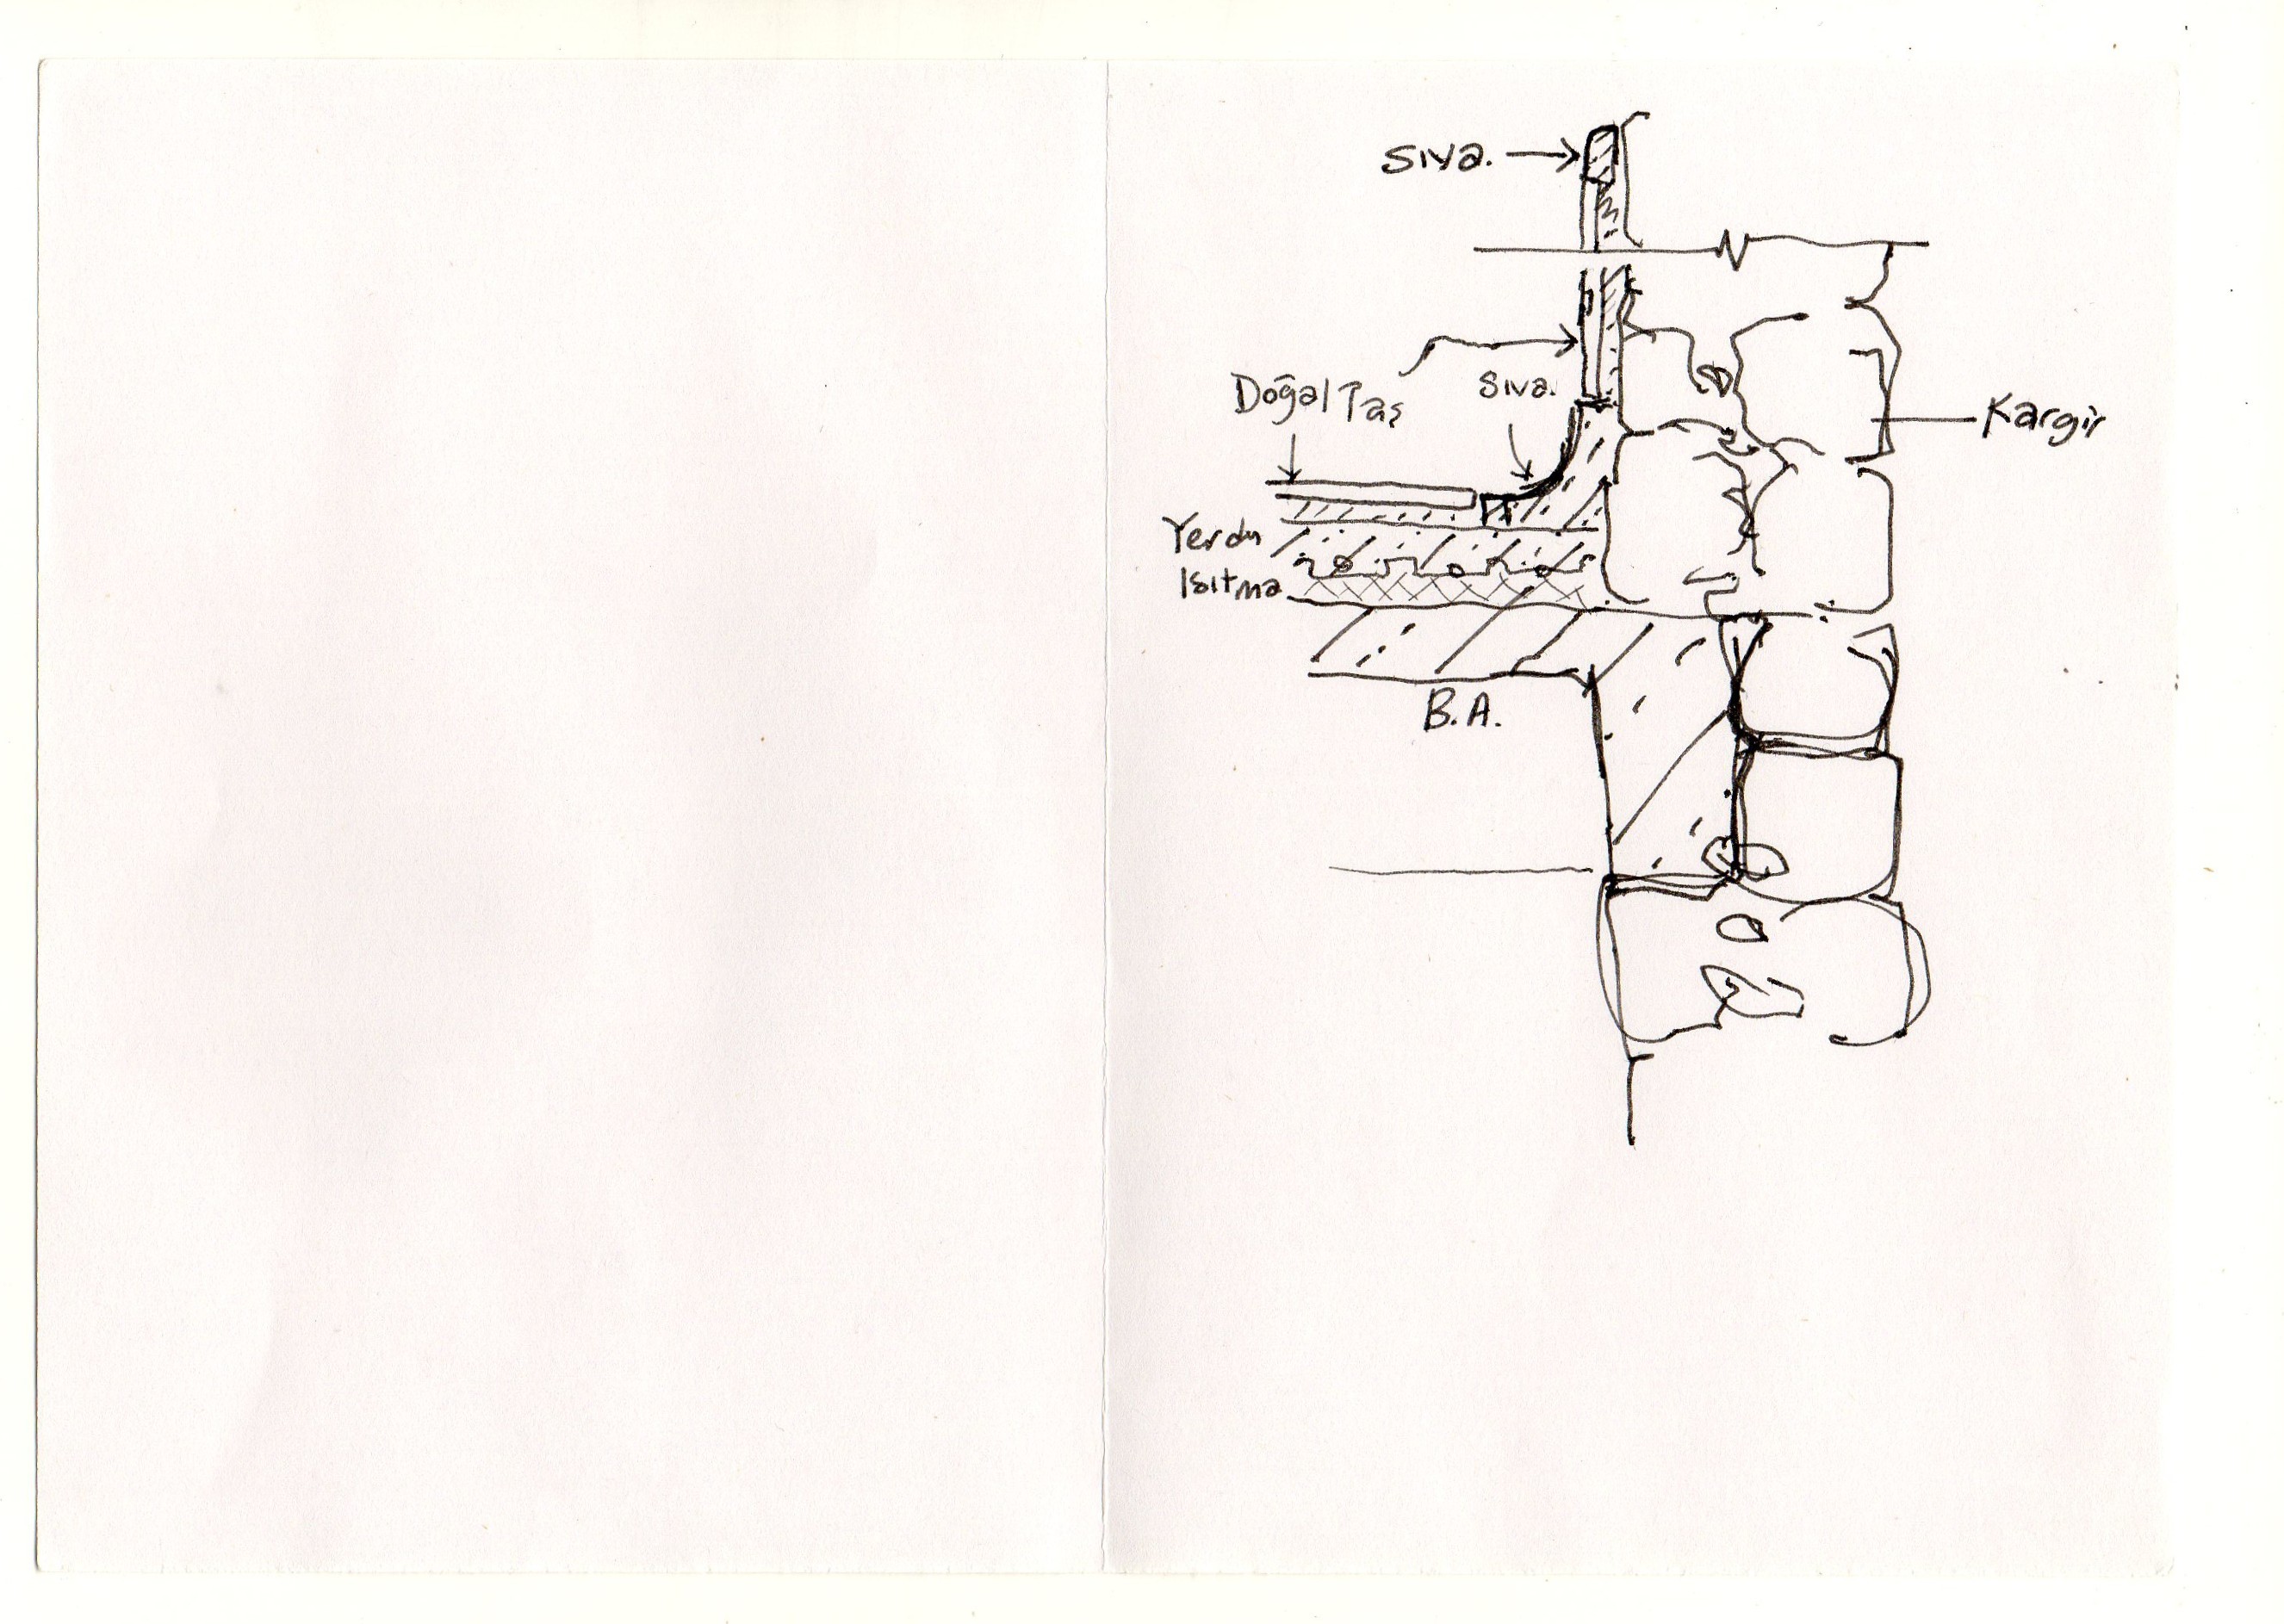 Sıva.
Doğal Taş
Sıva.
Kargir
Yerdn
Isıtma
B.A.